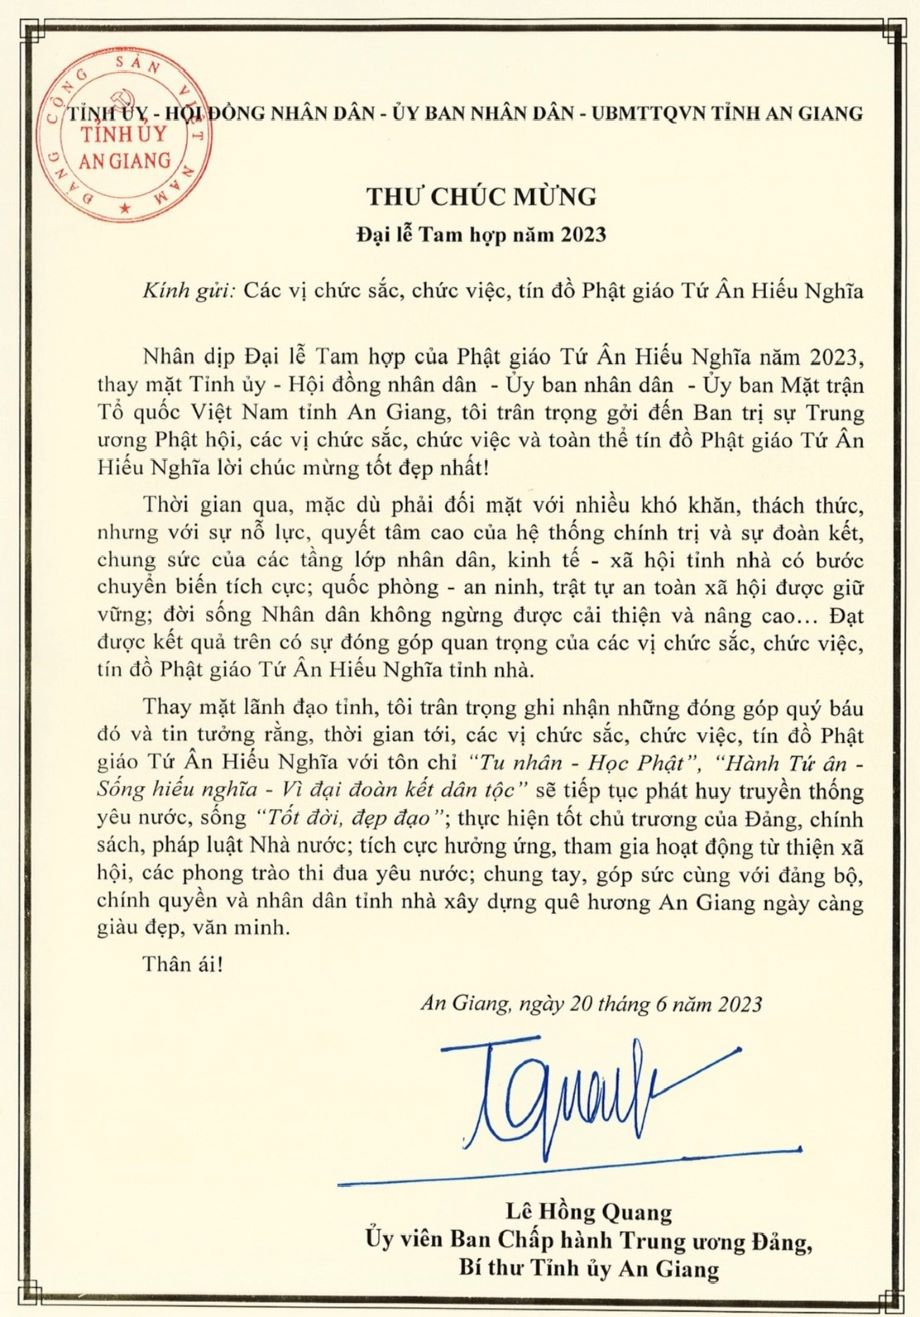 ĐẢNG CỘNG SẢN VIỆT NAM
TỈNH ỦY
AN GIANG
TỈNH ỦY - HỘI ĐỒNG NHÂN DÂN - ỦY BAN NHÂN DÂN - UBMTTQVN TỈNH AN GIANG
THƯ CHÚC MỪNG
Đại lễ Tam hợp năm 2023
Kính gửi: Các vị chức sắc, chức việc, tín đồ Phật giáo Tứ Ân Hiếu Nghĩa
Nhân dịp Đại lễ Tam hợp của Phật giáo Tứ Ân Hiếu Nghĩa năm 2023,
thay mặt Tỉnh ủy - Hội đồng nhân dân - Ủy ban nhân dân - Ủy ban Mặt trận
Tổ quốc Việt Nam tỉnh An Giang, tôi trân trọng gởi đến Ban trị sự Trung
ương Phật hội, các vị chức sắc, chức việc và toàn thể tín đồ Phật giáo Tứ Ân
Hiếu Nghĩa lời chúc mừng tốt đẹp nhất!
Thời gian qua, mặc dù phải đối mặt với nhiều khó khăn, thách thức,
nhưng với sự nỗ lực, quyết tâm cao của hệ thống chính trị và sự đoàn kết,
chung sức của các tầng lớp nhân dân, kinh tế - xã hội tỉnh nhà có bước
chuyển biến tích cực; quốc phòng - an ninh, trật tự an toàn xã hội được giữ
vững; đời sống Nhân dân không ngừng được cải thiện và nâng cao… Đạt
được kết quả trên có sự đóng góp quan trọng của các vị chức sắc, chức việc,
tín đồ Phật giáo Tứ Ân Hiếu Nghĩa tỉnh nhà.
Thay mặt lãnh đạo tỉnh, tôi trân trọng ghi nhận những đóng góp quý báu
đó và tin tưởng rằng, thời gian tới, các vị chức sắc, chức việc, tín đồ Phật
giáo Tứ Ân Hiếu Nghĩa với tôn chỉ “Tu nhân - Học Phật”, “Hành Tứ ân -
Sống hiếu nghĩa - Vì đại đoàn kết dân tộc” sẽ tiếp tục phát huy truyền thống
yêu nước, sống “Tốt đời, đẹp đạo”; thực hiện tốt chủ trương của Đảng, chính
sách, pháp luật Nhà nước; tích cực hưởng ứng, tham gia hoạt động từ thiện xã
hội, các phong trào thi đua yêu nước; chung tay, góp sức cùng với đảng bộ,
chính quyền và nhân dân tỉnh nhà xây dựng quê hương An Giang ngày càng
giàu đẹp, văn minh.
Thân ái!
An Giang, ngày 20 tháng 6 năm 2023
Lê Hồng Quang
Ủy viên Ban Chấp hành Trung ương Đảng,
Bí thư Tỉnh ủy An Giang